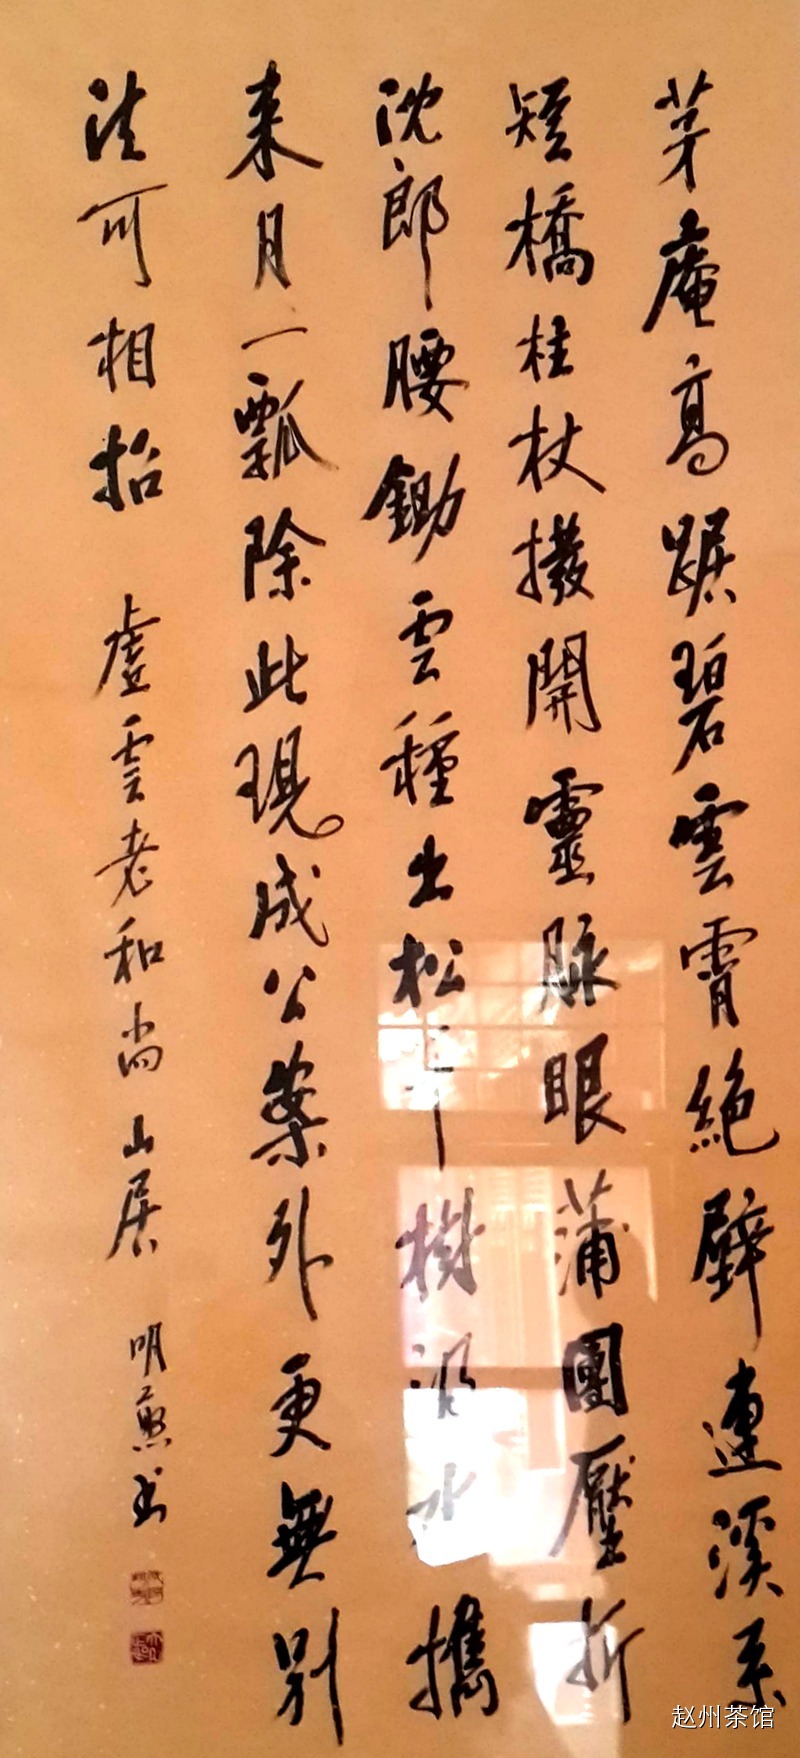 茅庵高踞碧雲霄絕壁連溪系
短橋柱杖撥開靈脉眼蒲團壓折
沈郎腰鋤雲種出松千樹汲水攜
来月一瓢除此現成公案外更無別
法可相招 虛雲老和尚山居 明书
赵州茶馆